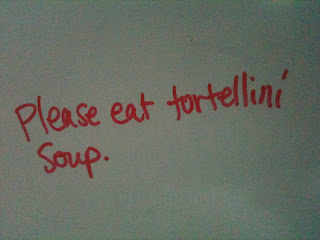 Please eat tortellini
Soup.